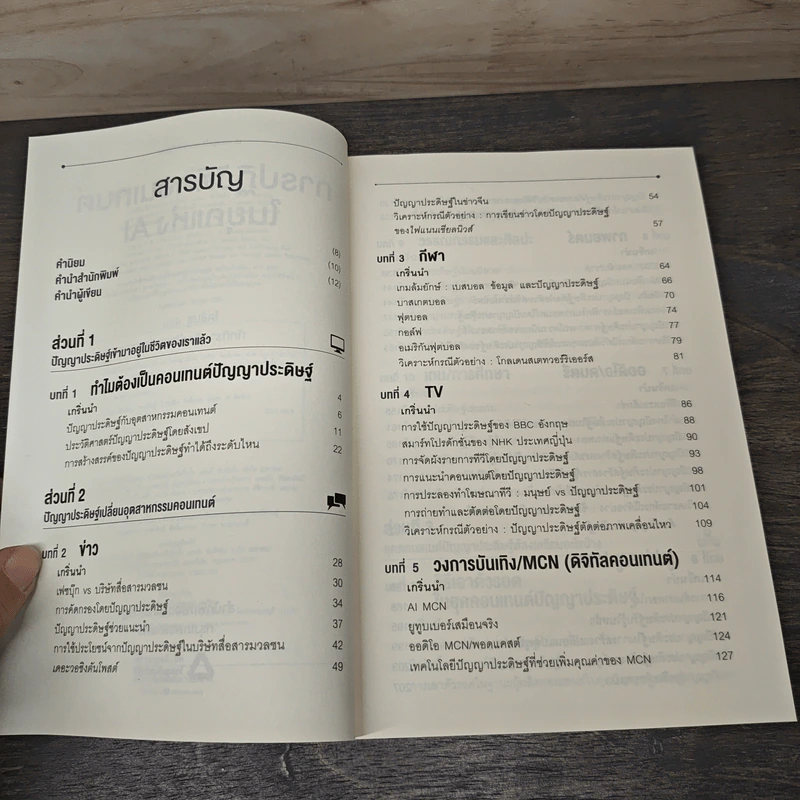 สารบัญ
คำนิยม (8)
คำนำสำนักพิมพ์ (10)
คำนำผู้เขียน (12)
ส่วนที่ 1
ปัญญาประดิษฐ์เข้ามาอยู่ในชีวิตของเราแล้ว
บทที่ 1 ทำไมต้องเป็นคอนเทนต์ปัญญาประดิษฐ์
เกริ่นนำ 4
ปัญญาประดิษฐ์กับอุตสาหกรรมคอนเทนต์ 6
ประวัติศาสตร์ปัญญาประดิษฐ์โดยสังเขป 11
การสร้างสรรค์ของปัญญาประดิษฐ์ทำได้ถึงระดับไหน 22
ส่วนที่ 2
ปัญญาประดิษฐ์เปลี่ยนอุตสาหกรรมคอนเทนต์
บทที่ 2 ข่าว
เกริ่นนำ 28
เฟซบุ๊ก vs บริษัทสื่อสารมวลชน 30
การคัดกรองโดยปัญญาประดิษฐ์ 34
ปัญญาประดิษฐ์ช่วยแนะนำ 37
การใช้ประโยชน์จากปัญญาประดิษฐ์ในบริษัทสื่อสารมวลชน 42
เดอะวอชิงตันโพสต์ 49
ปัญญาประดิษฐ์ในข่าวจีน 54
วิเคราะห์กรณีตัวอย่าง : การเขียนข่าวโดยปัญญาประดิษฐ์
ของไฟแนนเชียลนิวส์ 57
บทที่ 3 กีฬา
เกริ่นนำ 64
เกมล้มยักษ์ : เบสบอล ข้อมูล และปัญญาประดิษฐ์ 66
บาสเกตบอล 70
ฟุตบอล 74
กอล์ฟ 77
อเมริกันฟุตบอล 79
วิเคราะห์กรณีตัวอย่าง : โกลเดนสเตทวอร์ริเออร์ส 81
บทที่ 4 TV
เกริ่นนำ 86
การใช้ปัญญาประดิษฐ์ของ BBC อังกฤษ 88
สมาร์ทโปรดักชันของ NHK ประเทศญี่ปุ่น 90
การจัดผังรายการทีวีโดยปัญญาประดิษฐ์ 93
การแนะนำคอนเทนต์โดยปัญญาประดิษฐ์ 98
การประลองทำโฆษณาทีวี : มนุษย์ vs ปัญญาประดิษฐ์ 101
การถ่ายทำและตัดต่อโดยปัญญาประดิษฐ์ 104
วิเคราะห์กรณีตัวอย่าง : ปัญญาประดิษฐ์ตัดต่อภาพเคลื่อนไหว 109
บทที่ 5 วงการบันเทิง/MCN (ดิจิทัลคอนเทนต์)
เกริ่นนำ 114
AI MCN 116
ยูทูบเบอร์เสมือนจริง 121
ออดิโอ MCN/พอดแคสต์ 124
เทคโนโลยีปัญญาประดิษฐ์ที่ช่วยเพิ่มคุณค่าของ MCN 127